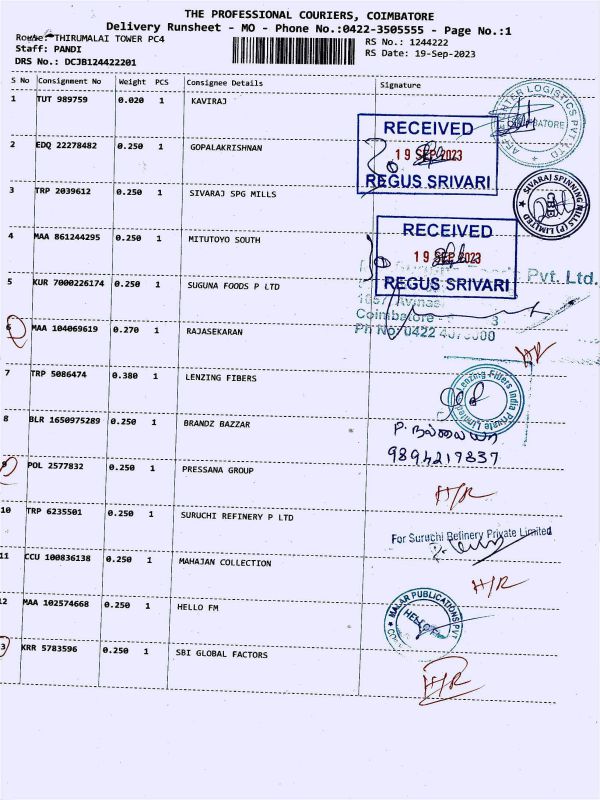 THE PROFESSIONAL COURIERS, COIMBATORE
Delivery Runsheet - MO - Phone No.:0422-3505555 - Page No.:1
Route: THIRUMALAI TOWER PC4
RS No.: 1244222
Staff: PANDI
RS Date: 19-Sep-2023
DRS No.: DCJB124422201
S No Consignment No Weight PCS Consignee Details Signature
1 TUT 989759 0.020 1 KAVIRAJ
COIMBATORE
RECEIVED
19 SEP 2023
REGUS SRIVARI
2 EDQ 22278482 0.250 1 GOPALAKRISHNAN
3 TRP 2039612 0.250 1 SIVARAJ SPG MILLS
SIVARAJ SPINNING MILLS (P) LIMITED
CBE
4 MAA 861244295 0.250 1 MITUTOYO SOUTH
RECEIVED
19 SEP 2023
REGUS SRIVARI
5 KUR 7000226174 0.250 1 SUGUNA FOODS P LTD
Foods Pvt. Ltd.
Coimbatore
Ph No: 0422
6 MAA 104069619 0.270 1 RAJASEKARAN
H/R
7 TRP 5086474 0.380 1 LENZING FIBERS
Lenzing Fibers India Private Limited
8 BLR 1650975289 0.250 1 BRANDZ BAZZAR
9894217837
9 POL 2577832 0.250 1 PRESSANA GROUP
H/R
10 TRP 6235501 0.250 1 SURUCHI REFINERY P LTD
For Suruchi Refinery Private Limited
11 CCU 100836138 0.250 1 MAHAJAN COLLECTION
H/R
12 MAA 102574668 0.250 1 HELLO FM
MALAR PUBLICATIONS PVT
HELLO
3 KRR 5783596 0.250 1 SBI GLOBAL FACTORS
H/R